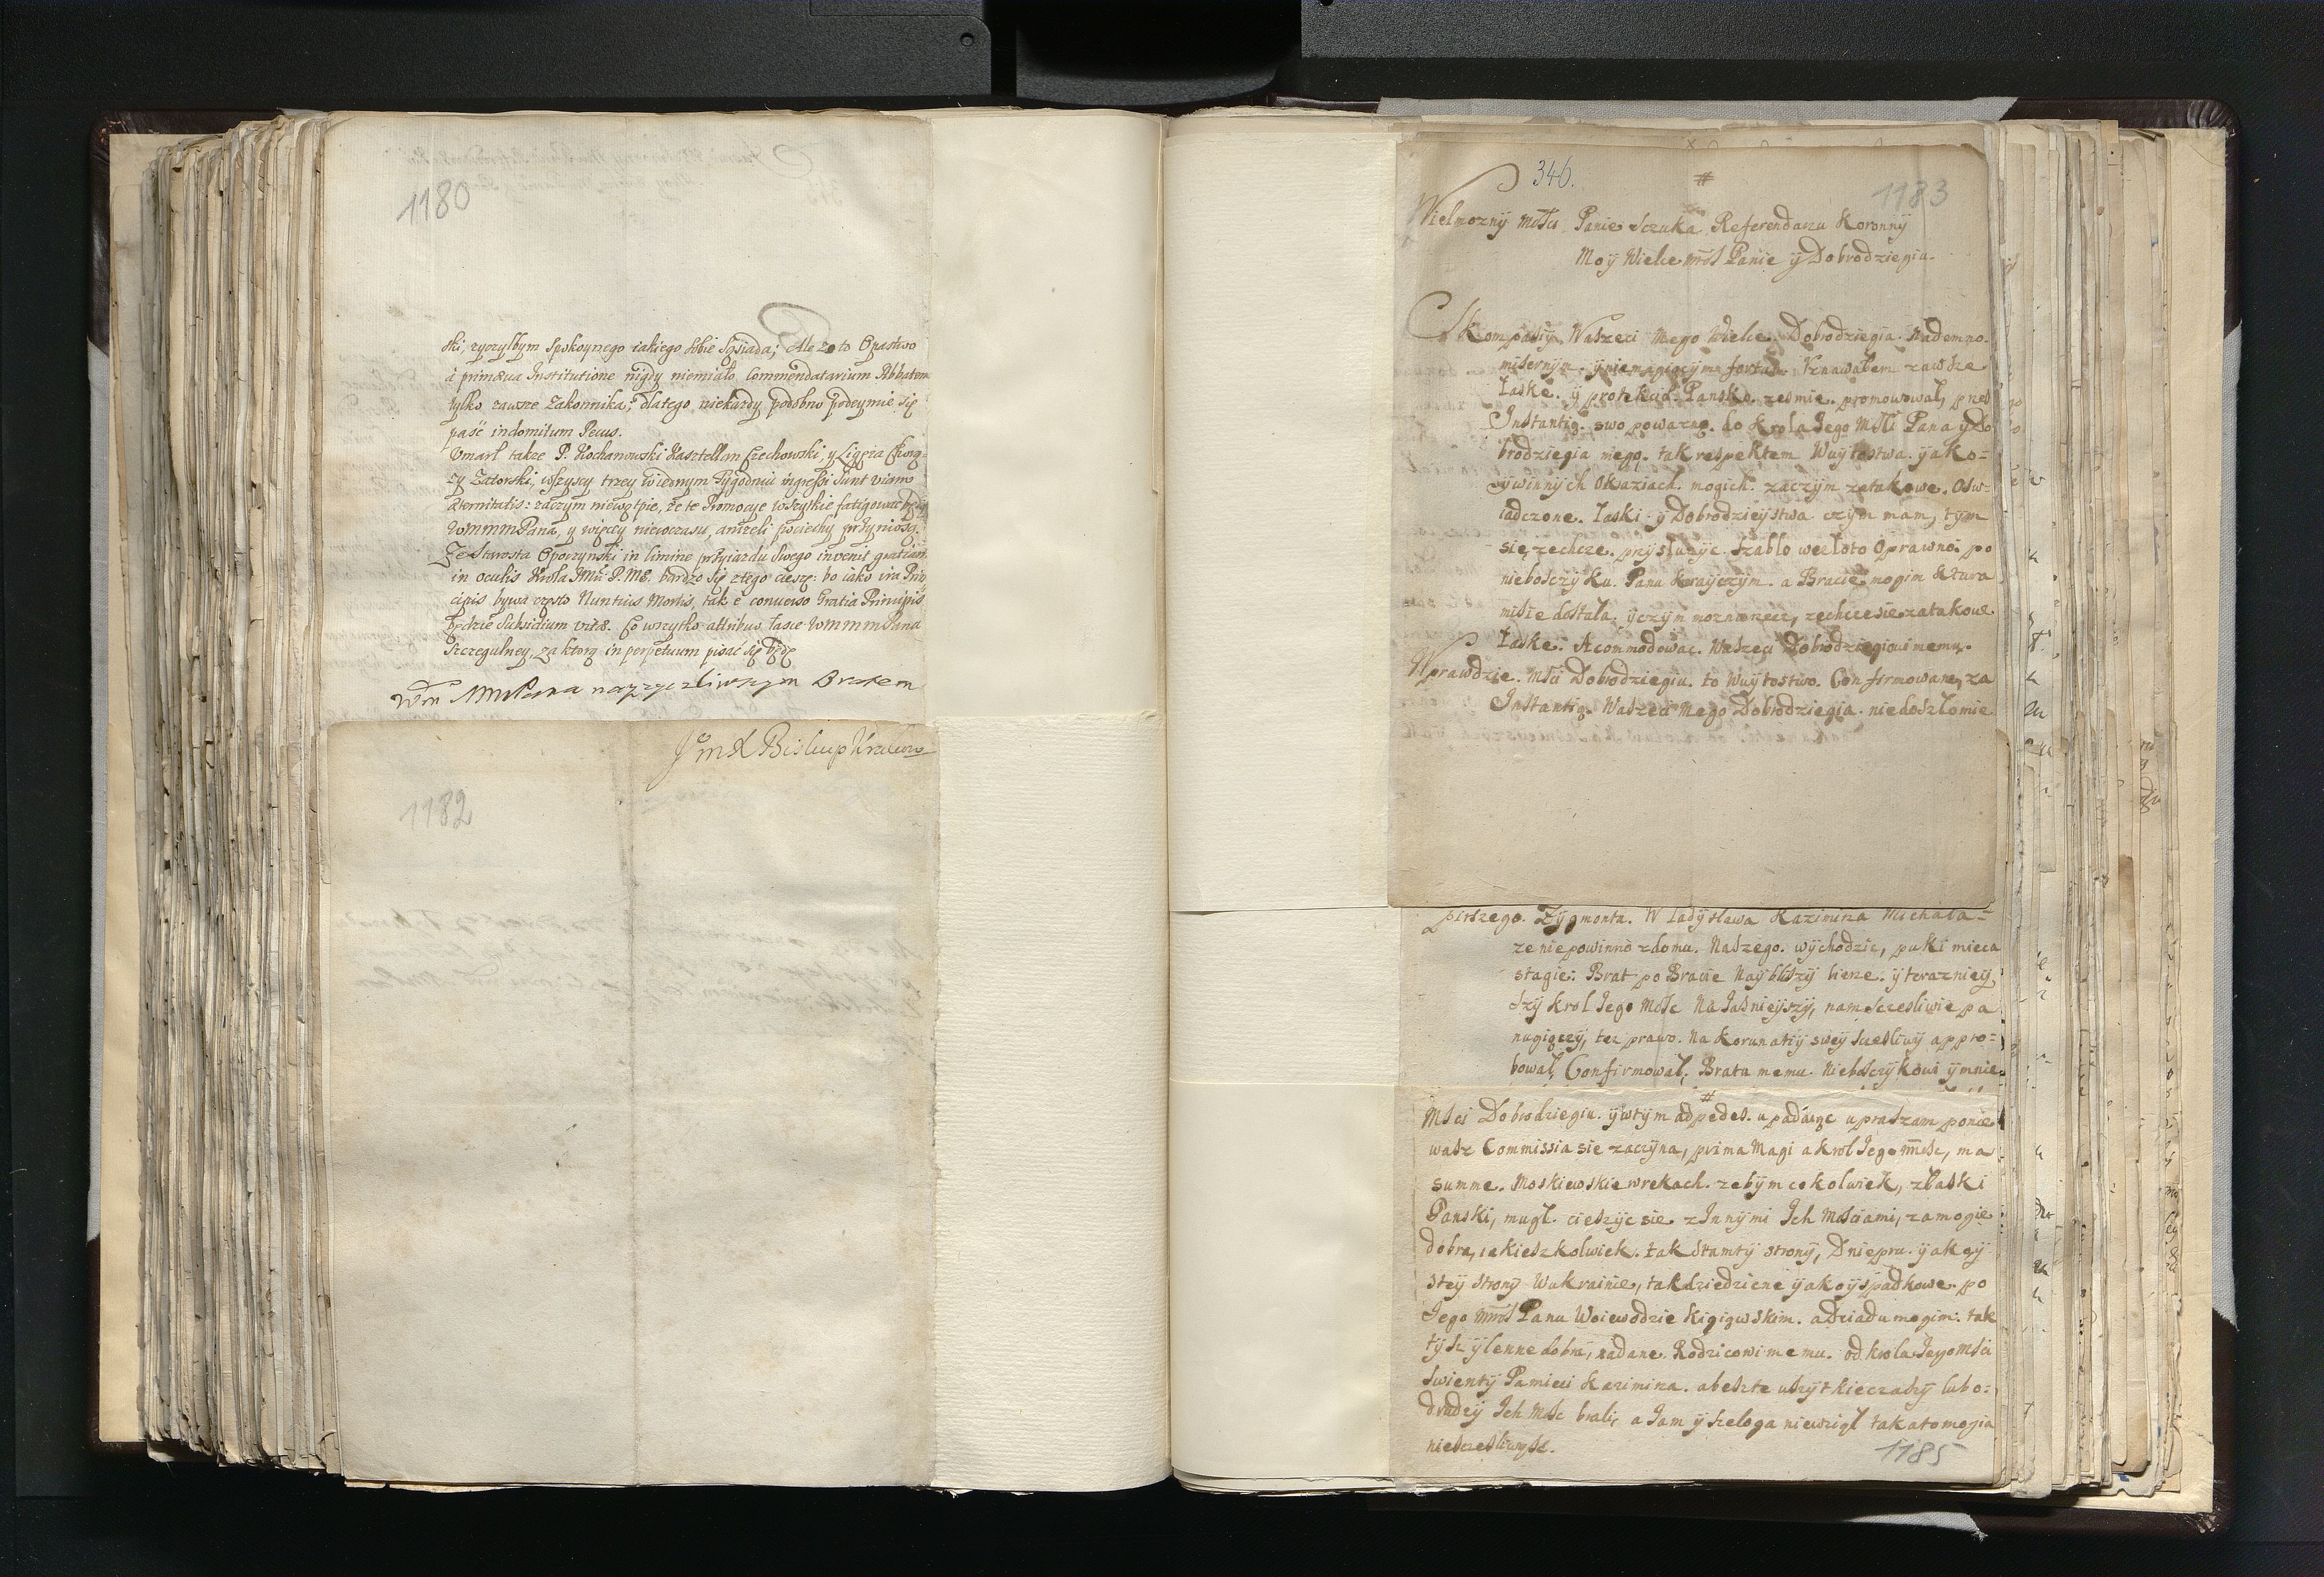 1180
ski, zyczylbym spokoynego iakiego sobie Sąsiada; Ale ze to Opactwo
à primæua Institutione nigdy niemiało Commendatarium Abbatem
tylko zawsze Zakonnika; dlatego niekazdy podobno podeymie się
paść indomitum Pecus.
Vmarł takze P. Kochanowski Kasztellan Czechowski, y Ligęza Chorą=
zy Zatorski, wszyscy trzey wiednym Tygodniu ingressi sunt viam
æternitatis: zaczym niewątpie, ze te Promocye wszytkie fatigować będą
WMMMPana, y więcey niewczasu, anizeli pociechy przyniosą.
Ze Starosta Opoczynski in limine przyiazdu swego invenit gratiam
in oculis Krola JMci P. ME. bardzo się ztego cieszę: bo iako ira Prin
cipis bywa często Nuntius Mortis, tak è conuerso Gratia Principis
będzie Subsidium vitæ. Co wszytko attribuo łasce WMMMPana
Szczegulney, za ktorą in perpetuum pisać się będę
WM MMPana nayzyczliwszym Bratem
Jmx Biskup Krakow
1182
346.
#
1183
Wielmozny Msci Panie Sczuka Referendarzu Koronny
Moy Wielce Msci Panie y Dobrodziegiu.
Skompasiy Waszeci Mego Wielce Dobrodziegia. Nademno.
misernym. yniemagiącym fortun Vznawałem zawsze
Łaske. y protekcio. Pansko. zesmie. promowował, przes
Instantią. swo powazną. do Krola Jego Msci Pana y Do
brodziegia mego. tak respektem Wuytostwa. yako=
ywinnych Okaziach. mogich. zaczym zatakowe. Osw=
iadczone. Łaski y Dobrodzieystwa czym mam, tym
się zechcze. przysłuzyc. szablo wezłoto Oprawno. po
nieboszczyku. Panu Krayczym. a Bracie mogim Ktura
misie dostala. yczym mozna rzecz, zechcesie zatakowe
Łaske. Acommodowac. Waszeci Dobrodziegiowi memu.
Wprawdzie. Msci Dobrodziegiu. to Wuytostwo. Confirmowane, za
Instantią. Waszeci Mego Dobrodziegia. niedoszlomie
pirszego. Zygmonta. Wladysława Kazimirza Michała=
ze niepowinno zdomu. Naszego. wychodzic, puki mieca
stagie. Brat po Bracie Nayblizszy bierze. y terazniey
szy krol Jego Mosc Na Jasnieyszy, nam sczesliwie pa
nugiączy, tez prawo. Na Korunatiy swey sczesliwy appro=
bował, Confirmował, Bratu memu. Nieboszczykowi ymnie
#
Msci Dobrodziegiu. ywtym ad pedes. upadaiąc upraszam ponie
wasz Commissia sie zaczyna, prima Magi a krol Jego Mosc, ma
summe. Moskiewskie wrekach. zebym cokolwiek, złaski
Panski, mugł. cieszyc sie zInnymi Ich Mosciami, zamogie
dobra, iakieszkolwiek. tak stamty strony, Dniepru. yak oy
stey strony Wukrainie, tak dziedziczne yak oy spadkowe. po
Jego Mosci Panu Woiewodzie Kigiowskim. a Dziadu mogim. tak
tysz y lenne dobra, nadane. Rodzicowi memu. od krola Jegomsci
swienty Pamieci Kazimirza. abeszte wszytkie czaszy lubo=
drudzy Ich Mosc brali, a Jam y szeloga niewziął taka to mogia
niesczesliwosc.
1185